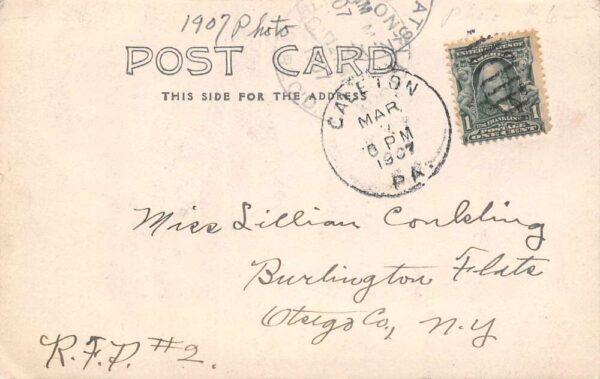 1907 Photo
POST CARD
THIS SIDE FOR THE ADDRESS
GALETON
MAR
6 PM
1907
PA.
UNITED STATES OF
AMERICA
1 FRANKLIN 1
POSTAGE
ONE CENT
Miss Lillian Conkling
Burlington Flats
Otsego Co., N.Y
R.F.D. #2.